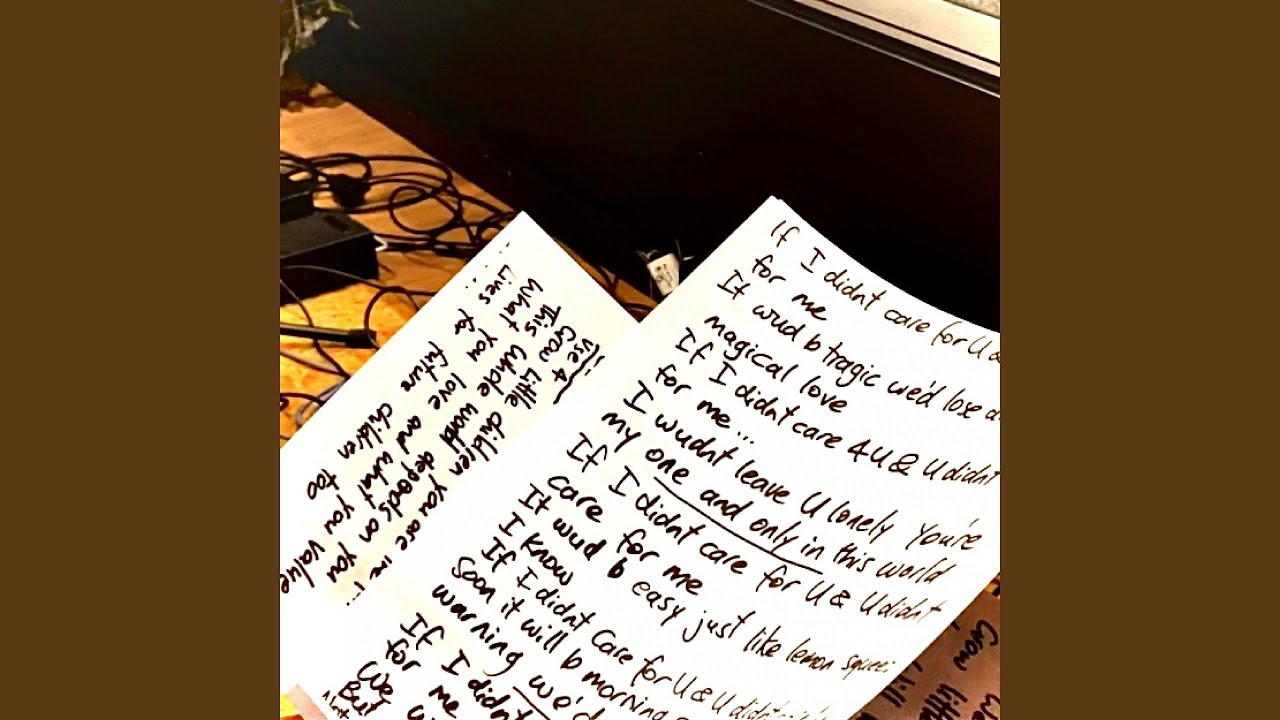 If I didnt care for U &
for me
It wud b tragic we'd lose a
magical love
If I didnt care 4 U & U didnt
for me...
I wudnt leave U lonely You're
my one and only in this world
If I didnt care for U & U didnt
care for me
It wud b easy just like lemon squeez
I know
If I didnt care for U & U didnt
Soon it will b morning
warning we'd
If I didnt
for me
We
But
Use 4
Grow little children you are the
This whole world depends on you
What you love and what you value
Lives for future children too
Grow little